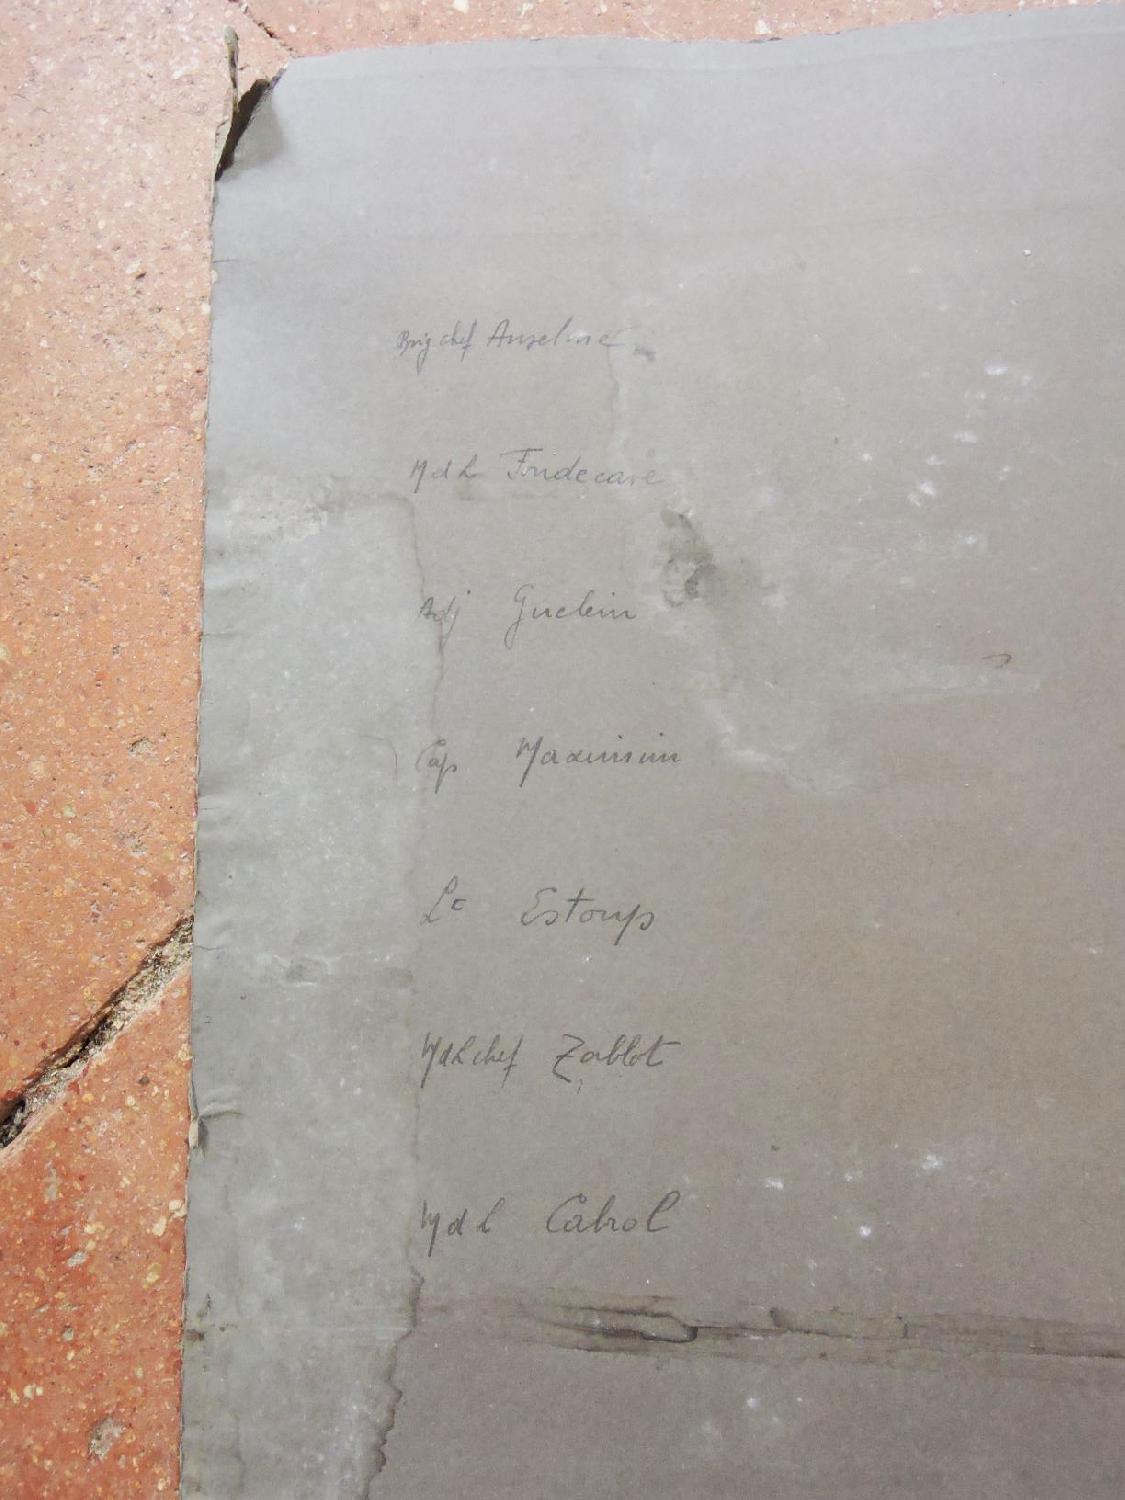 Brig chef Anselme
Mdl Fondecave
Adj Guelein
Cap Maximin
Lt Estoup
Mdl chef Zablot
Mdl Cabrol